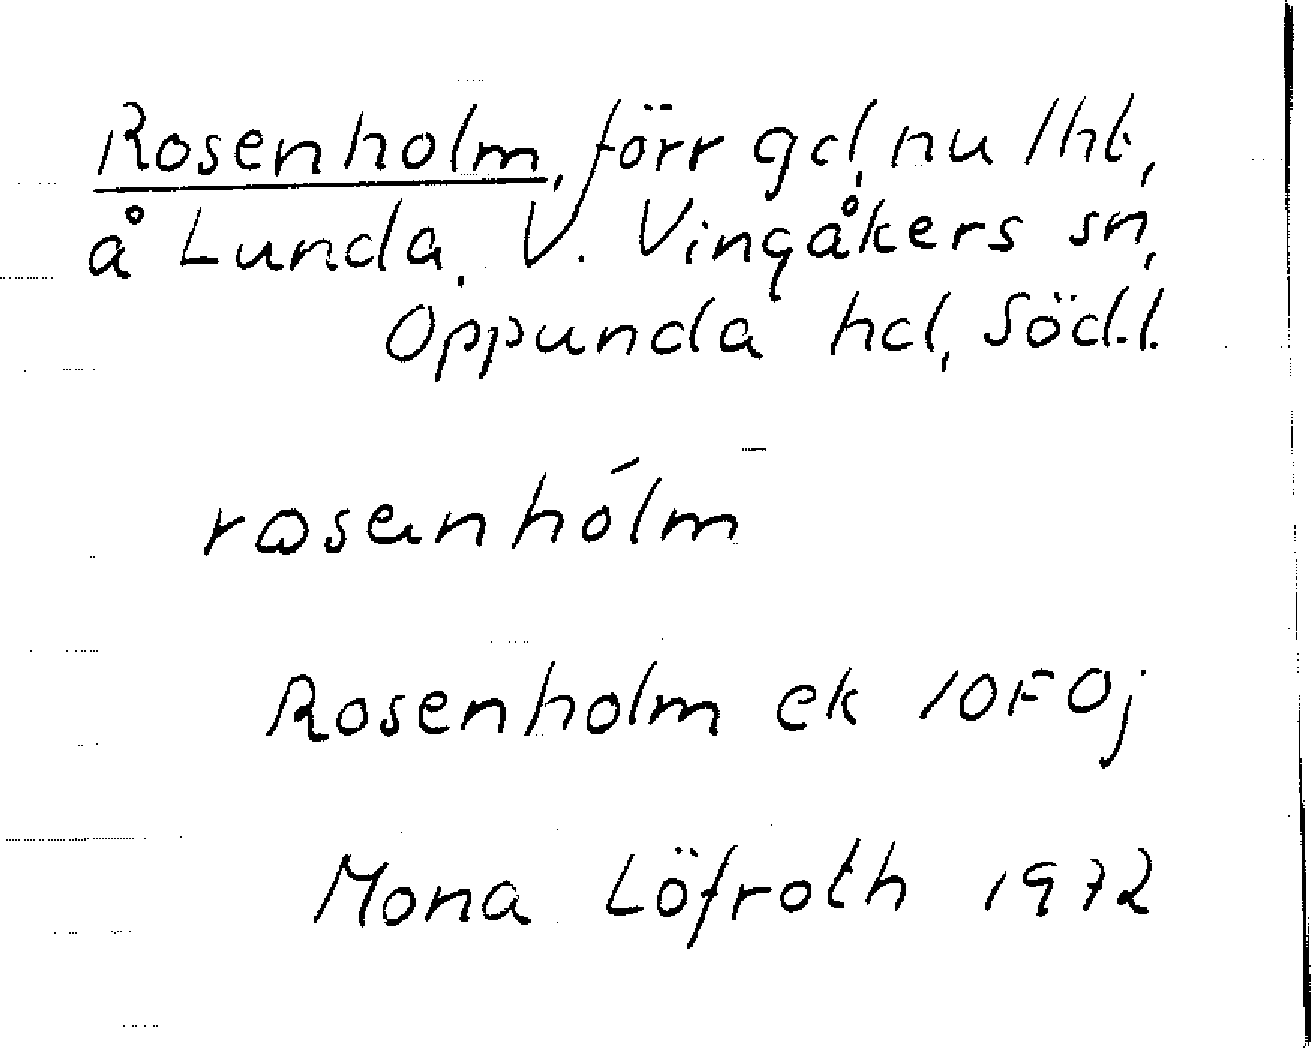 Rosenholm, förr gd, nu lht,
å Lunda. V. Vingåkers sn,
Oppunda hd, Söd.l.
rosanhólm
Rosenholm ek 10F0j
Mona Löfroth 1972